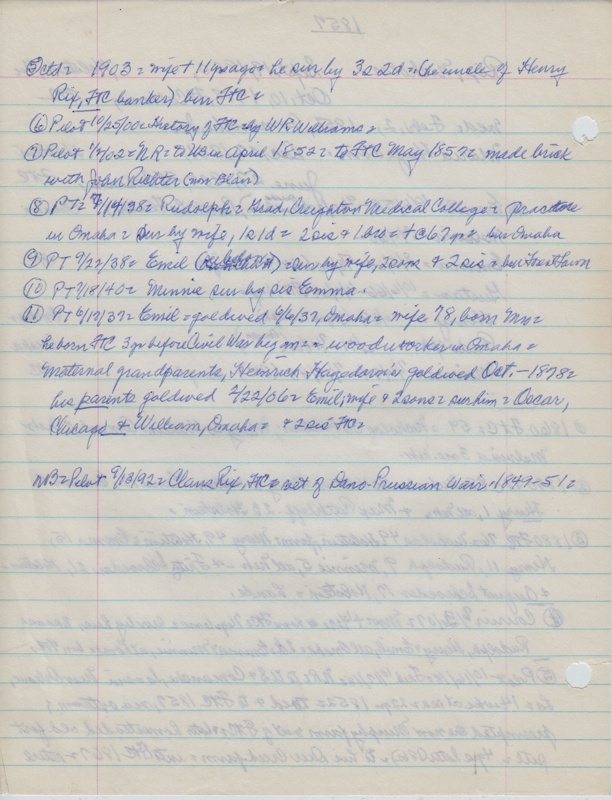 5 ctd = 1903 = wife + 11 yrs ago = he sur by 3s 2d = (he uncle of Henry
Rix, FtC banker) bur FtC =
⑥ Pilot 10/25/00 = History of FtC = by WR Williams =
⑦ Pilot 1/ /02 = NR = to US in April 1852 = to FtC May 1857 = made brick
with John Richter (near Blair)
⑧ PT = /14/38 = Rudolph = Head, Creighton Medical College = practice
in Omaha = sur by wife, 1s 1d = 2 sis = 1 bro = + bur Omaha
⑨ PT 9/22/38 = Emil = sur by wife, 2 sons + 2 sis = bur Forest Lawn
⑩ PT 7/18/40 = Minnie sur by sis Emma.
⑪ PT 6/17/37 = Emil = goldwed 6/ /37, Omaha = wife 78, born Mo =
he born FtC 3 yr before Civil War began = woodworker in Omaha =
maternal grandparents, Heinrich Hagedorn goldwed Oct. - 1878 =
his parents goldwed 2/22/06 = Emil, wife + 2 sons = sur him = Oscar,
Chicago + William, Omaha = + 2 sis FtC =
NB = Pilot 9/13/92 = Claus Rix, FtC = vet of Dano-Prussian War = 1849-51 =